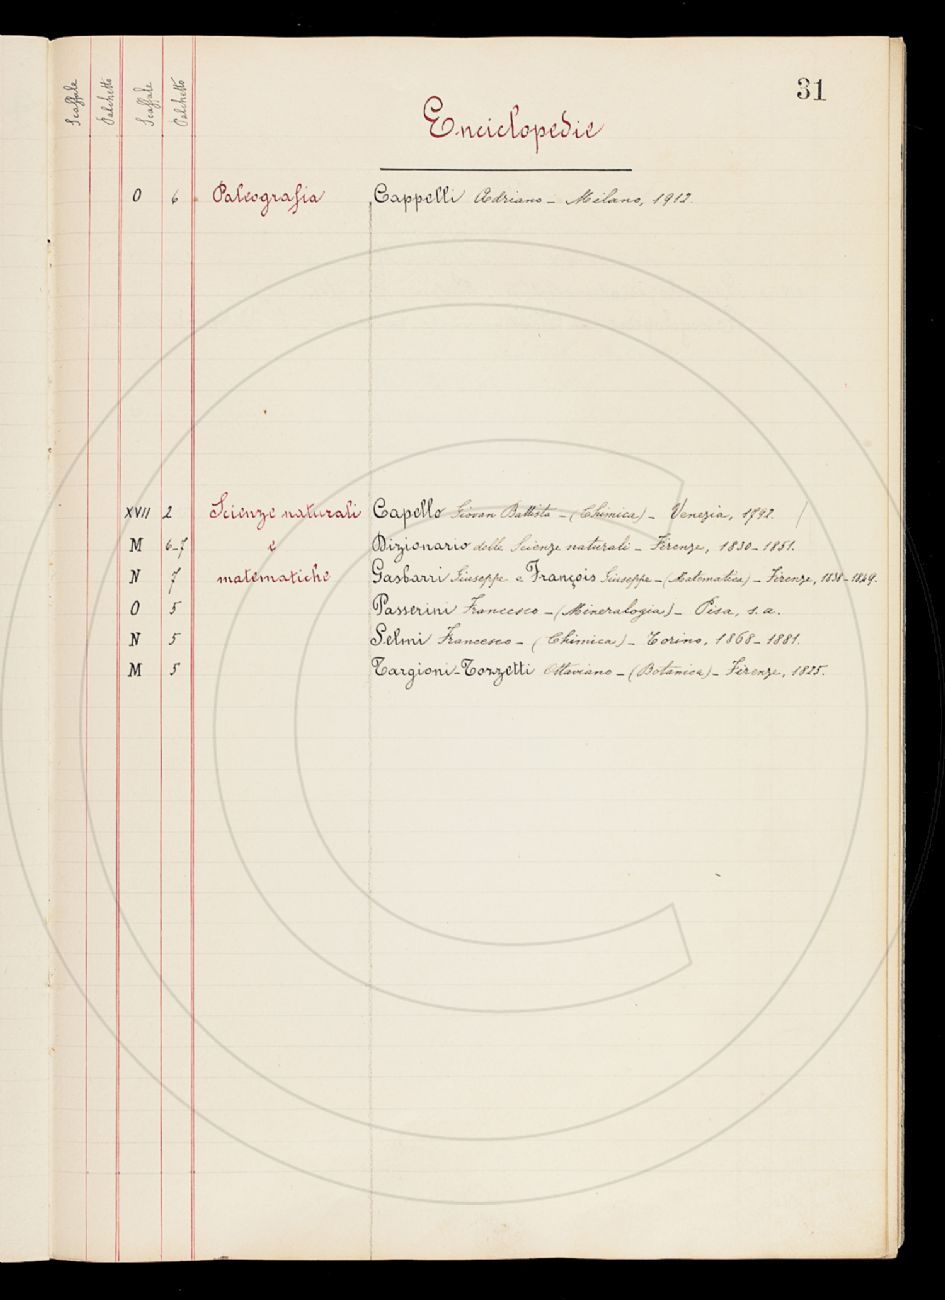 31
Scaffale Palchetto Scaffale Palchetto
Enciclopedie
O 6 Paleografia Cappelli Adriano - Milano, 1912.
XVII 2 Scienze naturali Capello Giovan Battista - (Chimica) - Venezia, 1792.
M 6-7 e Dizionario delle Scienze naturali - Firenze, 1830-1851.
N 7 matematiche Gasbarri Giuseppe e François Giuseppe - (Matematica) - Firenze, 1838-1849.
O 5 Passerini Francesco - (Mineralogia) - Pisa, s.a.
N 5 Selmi Francesco - (Chimica) - Torino, 1868-1881.
M 5 Targioni-Tozzetti Ottaviano - (Botanica) - Firenze, 1825.